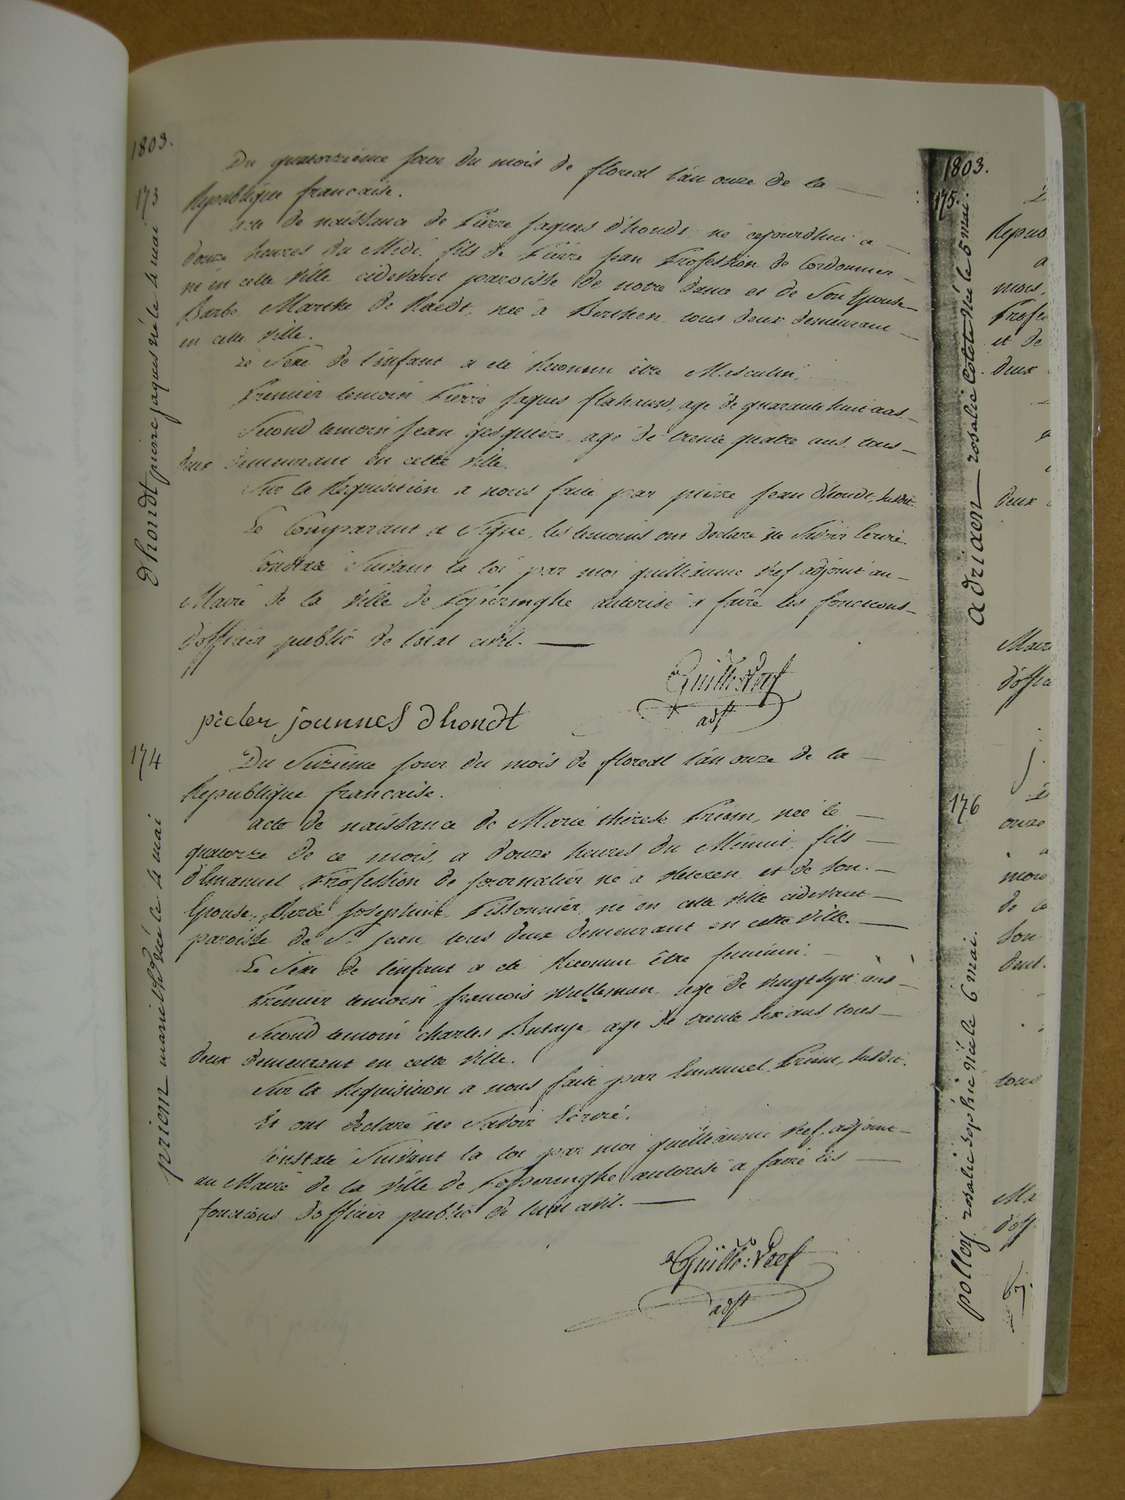 1803.
173
dhondt pierre jaques né le 4 mai
Du quatorzième jour du mois de floreal l'an onze de la
Republique francaise.
acte de naissance de Pierre Jaques d'hondt né cejourdhui a
douze heures du Midi fils de Pierre Jean Profession de Cordonnier
né en cette ville cidevant paroisse de notre dame et de son Epouse
Barbe Marthe de Raedt, née à Berthen tous deux demeurant
en cette ville.
Le Sexe de l'enfant a eté Reconnu être Masculin.
Premier temoin Pierre Jaques flahausd, agé de quarante huit ans
Second temoin Jean agé de trente quatre ans tous
deux demeurant en cette ville.
Sur la Requisition a nous faite par pierre Jean Dhondt, susdit.
Le Comparant a Signé, les temoins ont declaré ne Savoir Ecrire.
Constaté Suivant la loi par moi guilliaume Reef adjoint au
Maire de la ville de Poperinghe autorisé a faire les fonctions
d'officier public de l'etat civil.
Guille Reef
adjt
pieter joannes dhondt
174
priem marie th: née le 4 mai
Du Seizieme jour du mois de floreal l'an onze de la
Republique francaise.
acte de naissance de Marie therese Priem, née le
quatorze de ce mois, a douze heures du Minuit, fils
d'Emanuel Profession de journalier né a et de son
Epouse, Barbe Josephine né en cette ville cidevant
paroisse de St Jean tous deux demeurant en cette ville.
Le Sexe de l'enfant a eté Reconnu être feminin.
Premier temoin francois Wulleman agé de ans
Second temoin Charles Butaye agé de trente six ans tous
deux demeurant en cette ville.
Sur la Requisition a nous faite par Emanuel Priem, susdit.
Et ont declaré ne Savoir Ecrire.
Constaté Suivant la loi par moi guilliaume Reef adjoint
au Maire de la ville de Poperinghe autorisé a faire les
fonctions d'officier public de l'etat civil.
Guille: Reef
adjt
1803.
175.
adriaen rosalie Colete née le 5 mai.
Repub
mois.
Profes
et de
deux
deux
Maire
d'offic
176
polley rosalie sophie née le 6 mai.
onze
mois
de ce
son
deux
tous
Ma
d'off